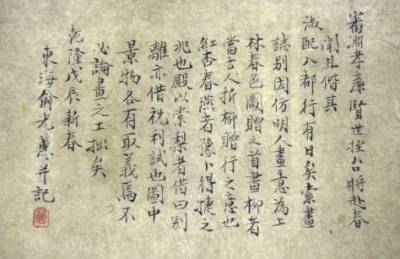 審淵孝廉賢世姪台將赴春
闈且偕其
淑配入都行有日矣索畫
誌別因仿明人畫意為上
林春色圖贈之首畫柳者
當古人折柳贈行之意也
紅杏春燕者豫卜得捷之
兆也殿以棠梨者借曰別
離亦借祝利試也圖中
景物各有取義焉不
必論畫之工拙矣
乾隆戊辰新春
東海俞光蕙并記